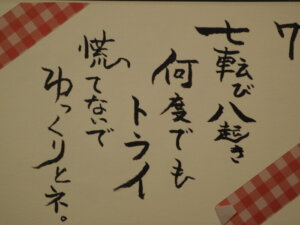 7
七転び八起き
何度でも
トライ
慌てないで
ゆっくりとネ。